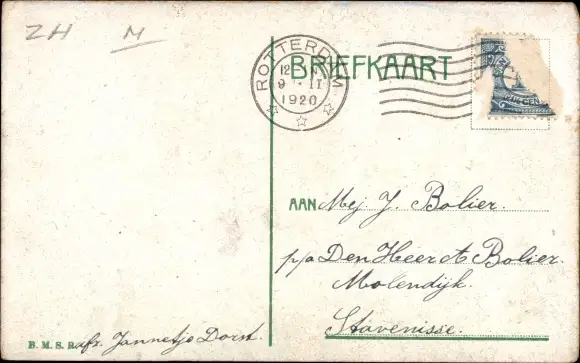 ZH M
ROTTERDAM
12
9 · II
1920
BRIEFKAART
CENT
AAN Mej J. Bolier.
p/a Den Heer A Bolier.
Molendijk.
Stavenisse.
B. M. S. R. afz. Jannetje Dorst.